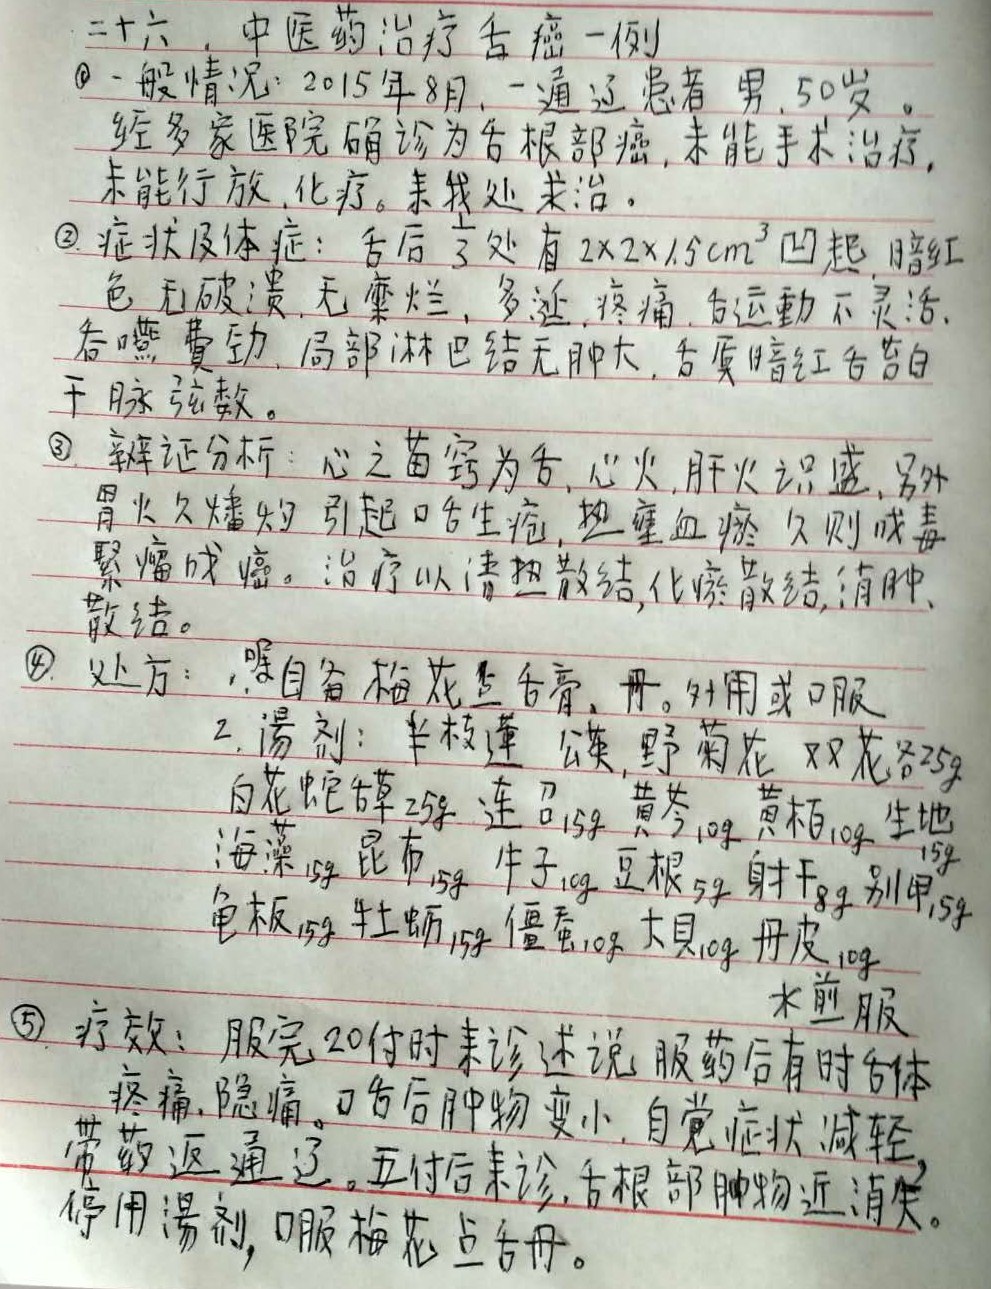 二十六，中医药治疗舌癌一例
① 一般情况：2015年8月，一通辽患者 男，50岁。
经多家医院确诊为舌根部癌，未能手术治疗，
未能行放、化疗。来我处求治。
② 症状及体症：舌后⅓处有2×2×1.5cm³凹起，暗红
色 无破溃，无糜烂，多涎，疼痛，舌运動不灵活，
吞嚥費劲，局部淋巴结无肿大，舌质暗红 舌苔白
干 脉弦数。
③ 辨证分析：心之苗窍为舌，心火，肝火 盛，另外
胃火久燔灼 引起口舌生疮，热壅血瘀 久则成毒
緊瘤成癌。治疗以清热散结，化瘀散结，消肿、
散结。
④ 处方：1.嘱自备梅花点舌膏、丹。外用或口服
2. 湯剂：半枝蓮 公英，野菊花 双花各25g
白花蛇舌草25g 连召15g 黄芩10g 黄柏10g 生地15g
海藻15g 昆布15g 牛子10g 豆根5g 射干8g 别甲15g
龟板15g 牡蛎15g 僵蚕10g 大貝10g 丹皮10g
水煎服
⑤ 疗效：服完20付时来诊 述说服药后有时舌体
疼痛、隐痛。口舌后肿物变小，自觉症状减轻，
带药返通辽。五付后来诊，舌根部肿物近消失。
停用湯剂，口服梅花点舌丹。